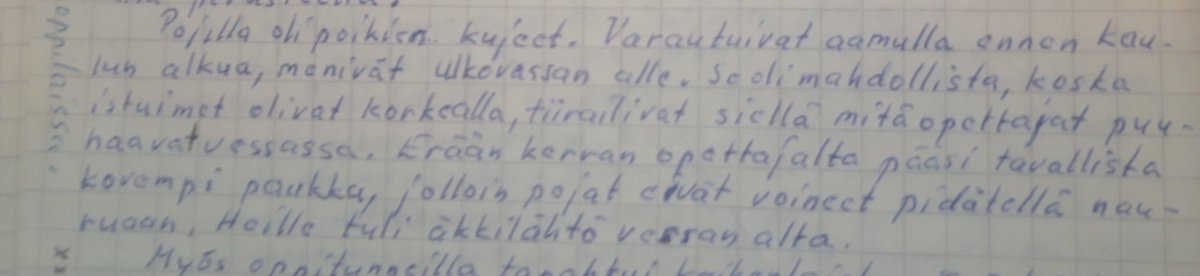 Pojilla oli poikien kujeet. Varautuivat aamulla ennen kou-
lun alkua, menivät ulkovessan alle. Se oli mahdollista, koska
istuimet olivat korkealla, tiirailivat siellä mitä opettajat puu-
haavat vessassa. Erään kerran opettajalta pääsi tavallista
kovempi paukku, jolloin pojat eivät voineet pidätellä nau-
ruaan. Heille tuli äkkilähtö vessan alta.
Myös oppitunneilla tapahtui kaikenlaista
oppilaissa.